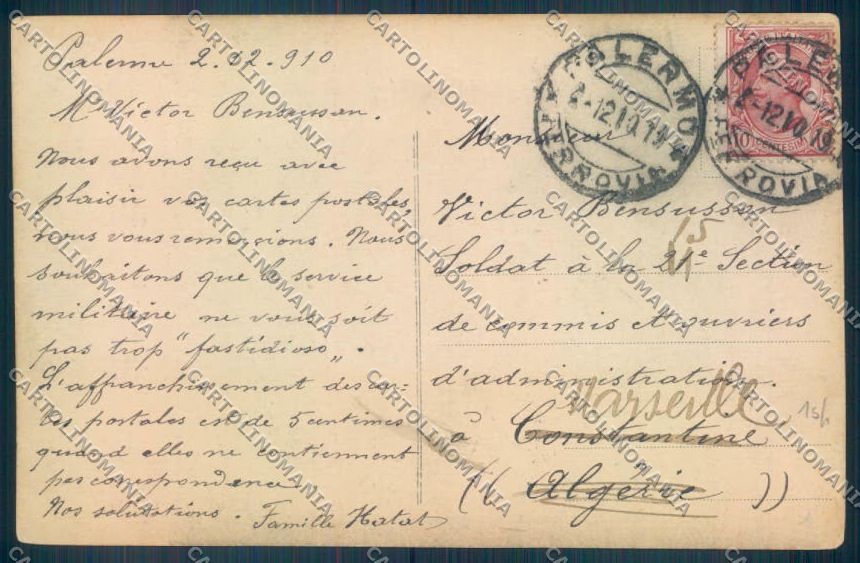 Palermo 2.12.910
Mr Victor Bensussan.
Nous avons reçu avec
plaisir vos cartes postales,
nous vous remercions. Nous
souhaitons que le service
militaire ne vous soit
pas trop "fastidioso".
L'affranchissement des car-
tes postales est de 5 centimes
quand elles ne contiennent
pas correspondence
Nos salutations. Famille Hatat
Monsieur
Victor Bensussan
Soldat à la 21e Section
15
11
de commis et ouvriers
d'administration.
Marseille
à Constantine
((Algérie))
PALERMO
2-12.10.19
FERROVIA
PALERMO
2-12.10.19
FERROVIA
10 CENTESIMI
CARTOLINOMANIA